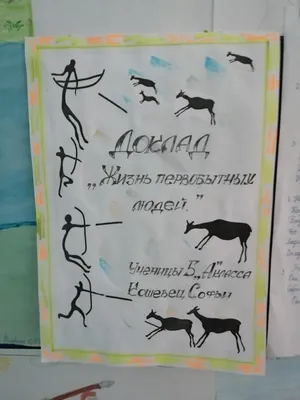 Доклад
„Жизнь первобытных
людей."
Ученицы 5 „А" класса
Кошевец Софьи